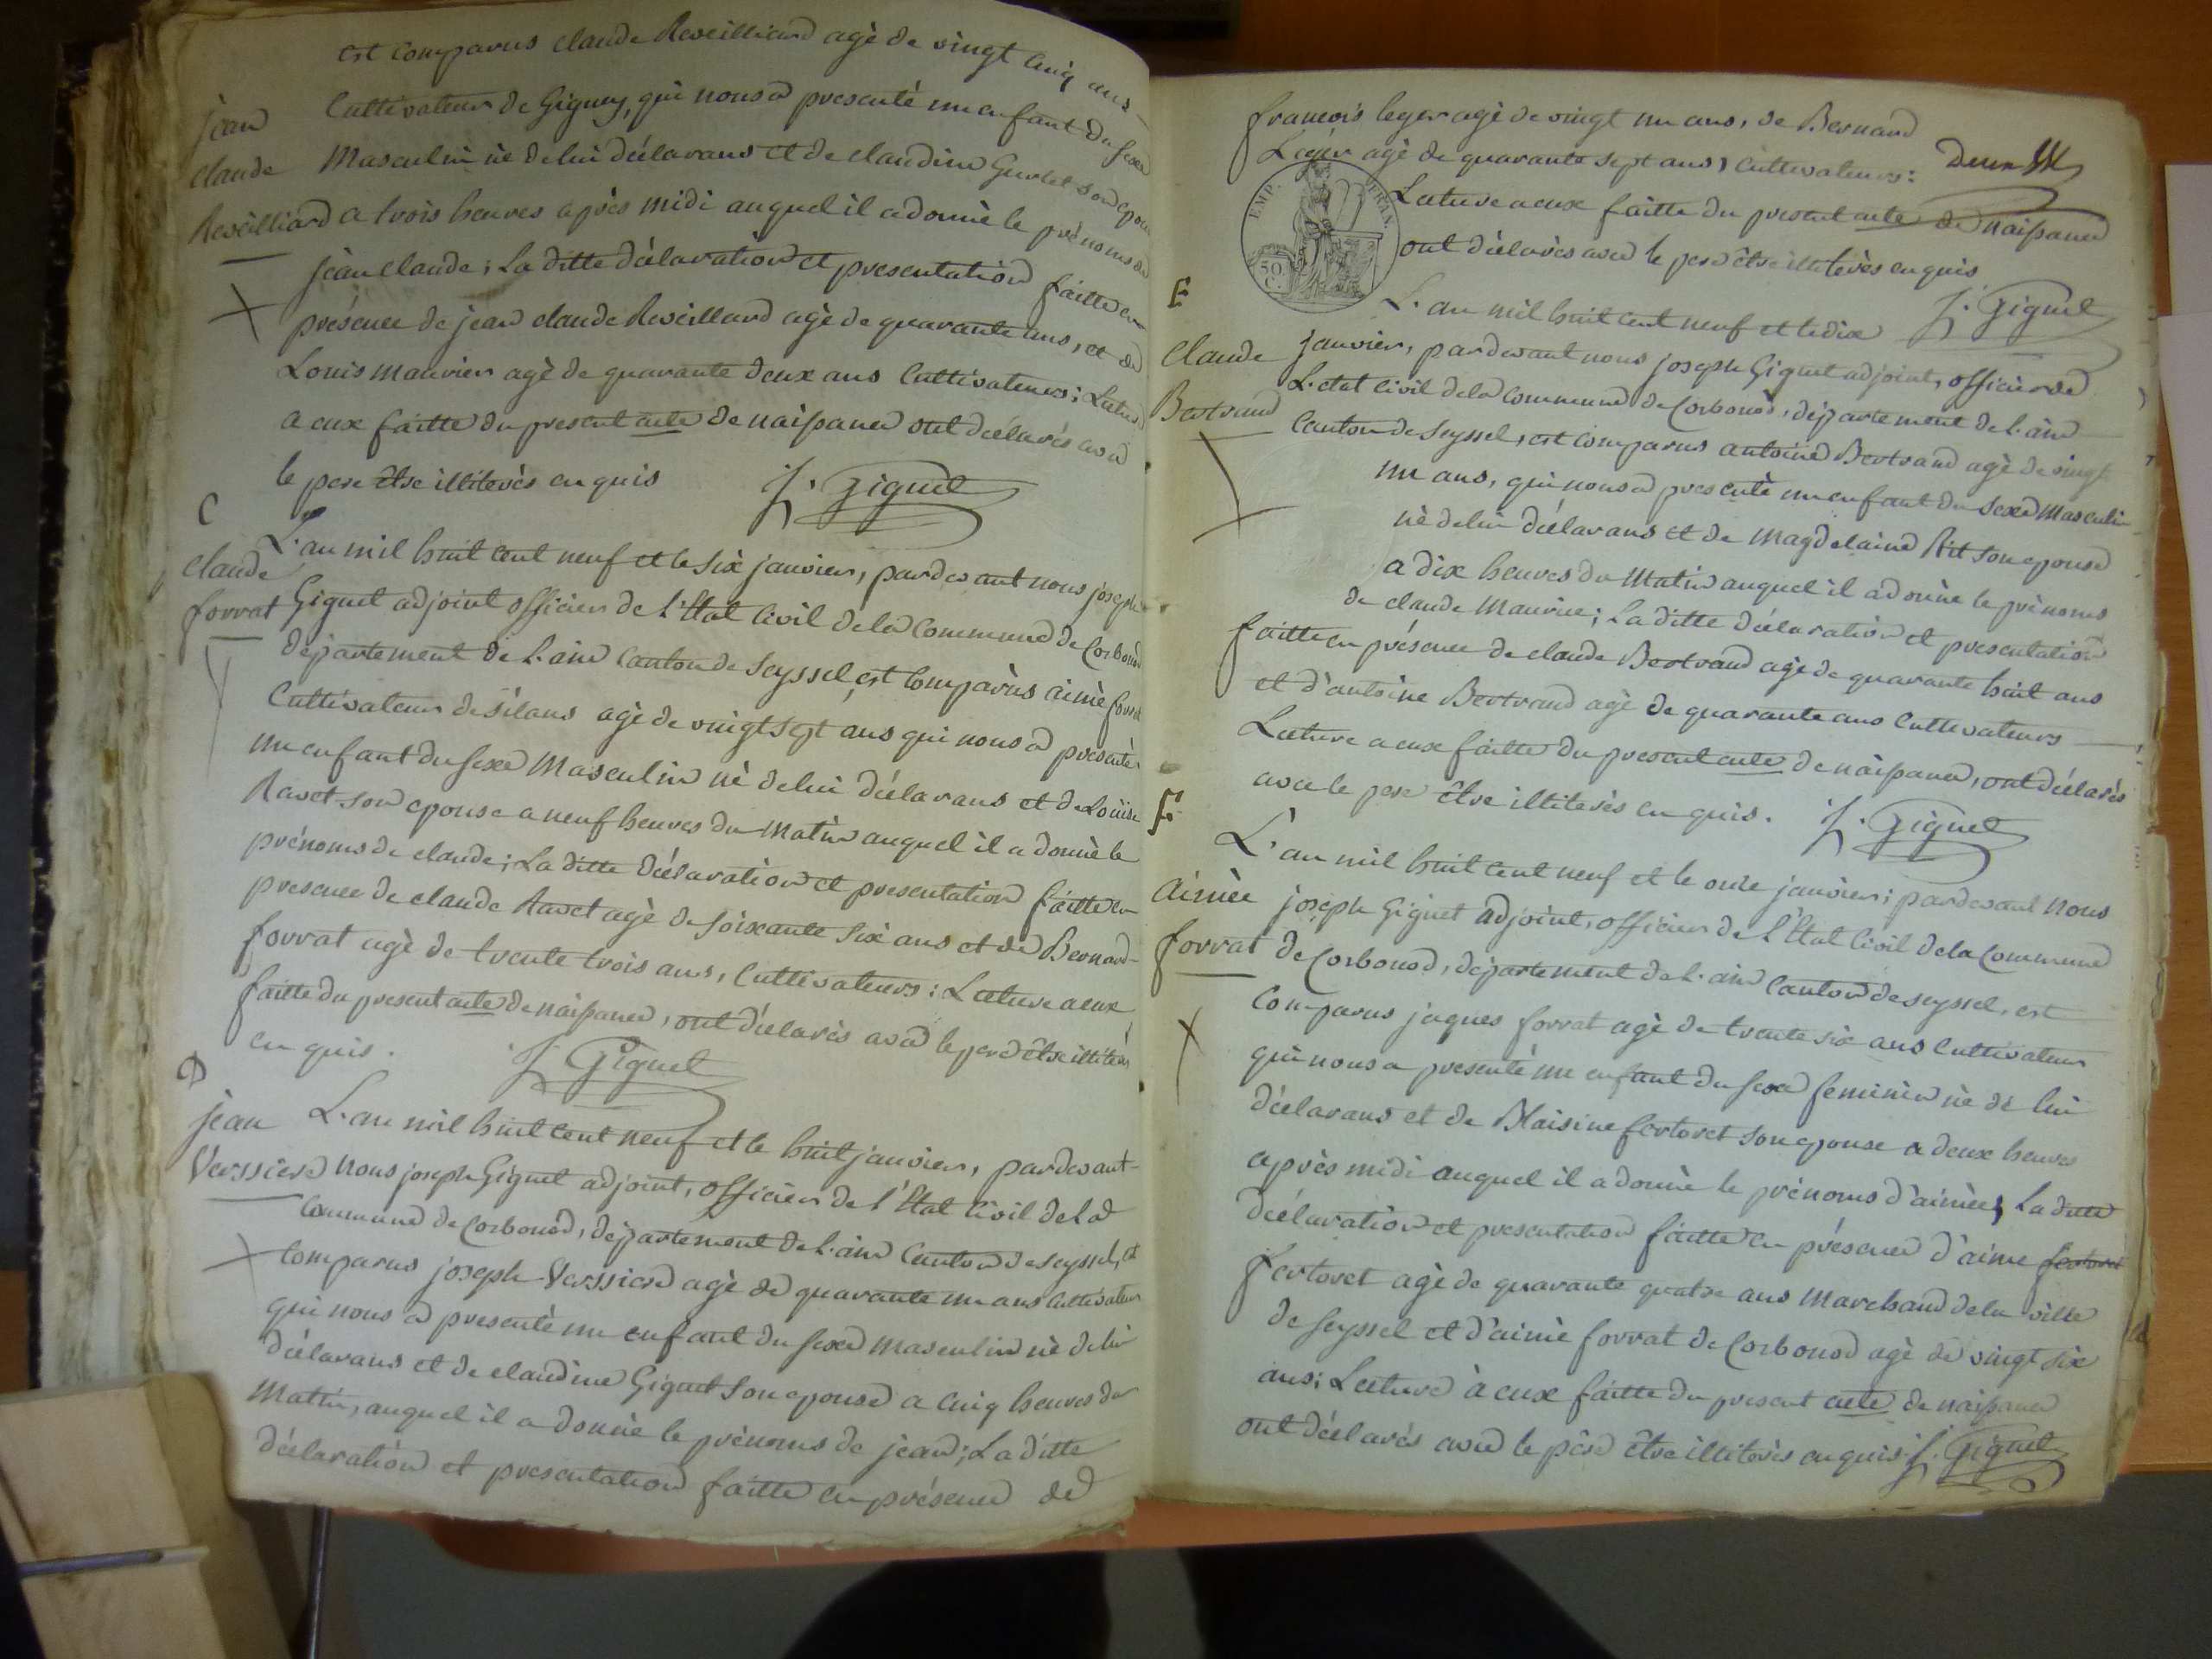 est comparus claude Reveilliard agè de vingt cinq ans
jean
claude
Reveilliard
Cultivateur de Gignez, qui nous a presentè un enfant du sexe
Masculin nè de lui déclarans et de claudine Gurlet son epouse
a trois heures après midi auquel il a donnè le prènoms de
jean claude; La ditte déclaration et presentation faitte en
présence de jean claude Reveillard agè de quarante ans, et de
Louis mauvier agè de quarante deux ans Cultivateurs; Lecture
a eux faitte du present acte de naissance ont déclarés avec
le pere être illiterés enquis J. Giguet
C
claude
forrat
L'an mil huit cent neuf et le six janvier, pardevant nous joseph
Giguet adjoint officier de l'Etat Civil de la Commune de Corbonod
département de l'ain Canton de Seyssel, est Comparus aimè forrat
Cultivateur de silans agè de vingt sept ans qui nous a presentè
un enfant du sexe Masculin nè de lui déclarans et de Louise
Ravet son epouse a neuf heures du Matin auquel il a donnè le
prénoms de claude; La ditte déclaration et presentation faitte en
presence de claude Ravet agè de soixante six ans et de Bernard
forrat agè de trente trois ans, Cultivateurs: Lecture a eux
faitte du present acte de naissance, ont déclarés avec le pere être illiterés
enquis. J. Giguet
D
jean
Verssiere
L'an mil huit cent neuf et le huit janvier, pardevant
nous joseph Giguet adjoint, officier de l'Etat Civil de la
Commune de Corbonod, département de l'ain Canton de seyssel, est
Comparus joseph Verssiere agè de quarante un ans Cultivateur
qui nous a presentè un enfant du sexe masculin nè de lui
déclarans et de claudine Giguet son epouse a Cinq heures du
Matin, auquel il a donnè le prénoms de jean; La ditte
déclaration et presentation faitte en présence de
francois leger agè de vingt un ans, de Bernard
Leger agè de quarante sept ans, Cultivateurs:
Deux
EMP. FRAN.
50 C.
Lecture a eux faitte du present acte de naissance
ont déclarés avec le pere être illiterés enquis
J. Giguet
E
claude
Bertrand
L'an mil huit cent neuf et le dix
janvier, pardevant nous joseph Giguet adjoint, officier de
L'etat Civil de la Commune de Corbonod, département de l'ain
Canton de Seyssel, est Comparus antoine Bertrand agè de vingt
un ans, qui nous a presentè un enfant du sexe Masculin
nè de lui déclarans et de Magdelaine Rit son epouse
a dix heures du Matin auquel il a donnè le prènoms
de claude Maurice; La ditte déclaration et presentation
faitte en présence de claude Bertrand agè de quarante huit ans
et d'antoine Bertrand agè de quarante ans Cultivateurs
Lecture a eux faitte du present acte de naissance, ont déclarés
avec le pere être illiterés enquis. J. Giguet
F
Aimèe
forrat
L'an mil huit cent neuf et le onze janvier; pardevant nous
joseph Giguet adjoint, officier de l'Etat Civil de la Commune
de Corbonod, département de l'ain Canton de seyssel, est
Comparus jaques forrat agè de trente six ans Cultivateur
qui nous a presentè un enfant du sexe feminin nè de lui
déclarans et de Blaisine fertoret son epouse a deux heures
après midi auquel il a donnè le prènoms d'aimèe; La ditte
déclaration et presentation faitte en présence d'aime fertoret
fertoret agè de quarante quatre ans Marchand de la ville
de seyssel et d'aimè forrat de Corbonod agè de vingt six
ans; Lecture à eux faitte du present acte de naissance
ont déclarés avec le père être illiterés enquis. J. Giguet